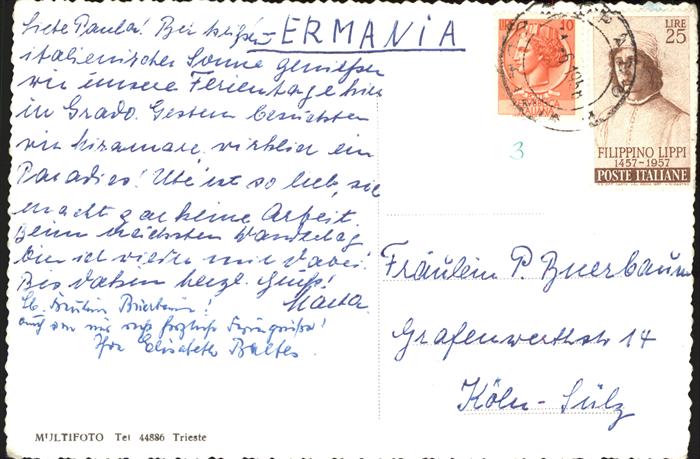 Liebe Paula! Bei heißer
GERMANIA
italienischer Sonne genießen
wir unsere Ferientage hier
in Grado. Gestern besuchten
wir Miramare. wirklich ein
Paradies! Ute ist so lieb, sie
macht gar keine Arbeit.
Beim nächsten Wandertag
bin ich wieder mit dabei.
Bis dahin herzl. Grüße!
Marta
Lb. Fräulein Bürbaum!
auch von mir recht herzliche Feriengrüße!
Ihre Elisabeth Baltes.
MULTIFOTO Tel 44886 Trieste
10
LIRE
25
FILIPPINO LIPPI
1457-1957
POSTE ITALIANE
3
Fräulein P. Buerbaum
Grafenwerthstr 14
Köln-Sülz